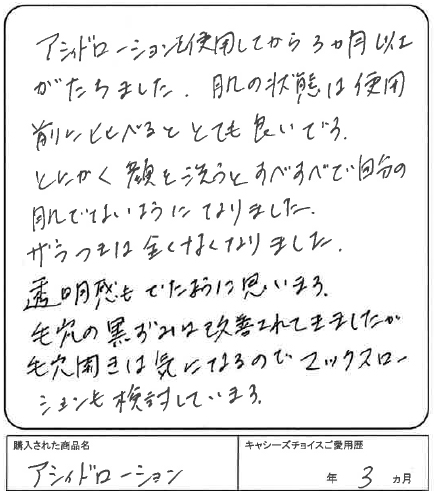 アシィドローションを使用してから3ヵ月以上
がたちました。肌の状態は使用
前にくらべるととても良いです。
とにかく顔を洗うとすべすべで自分の
肌でないようになりました。
ザラつきは全くなくなりました。
透明感もでたように思います。
毛穴の黒ずみは改善されてきましたが
毛穴開きは気になるのでマックスロー
ションも検討しています。
購入された商品名
アシィドローション
キャシーズチョイスご愛用歴
年 3 ヵ月